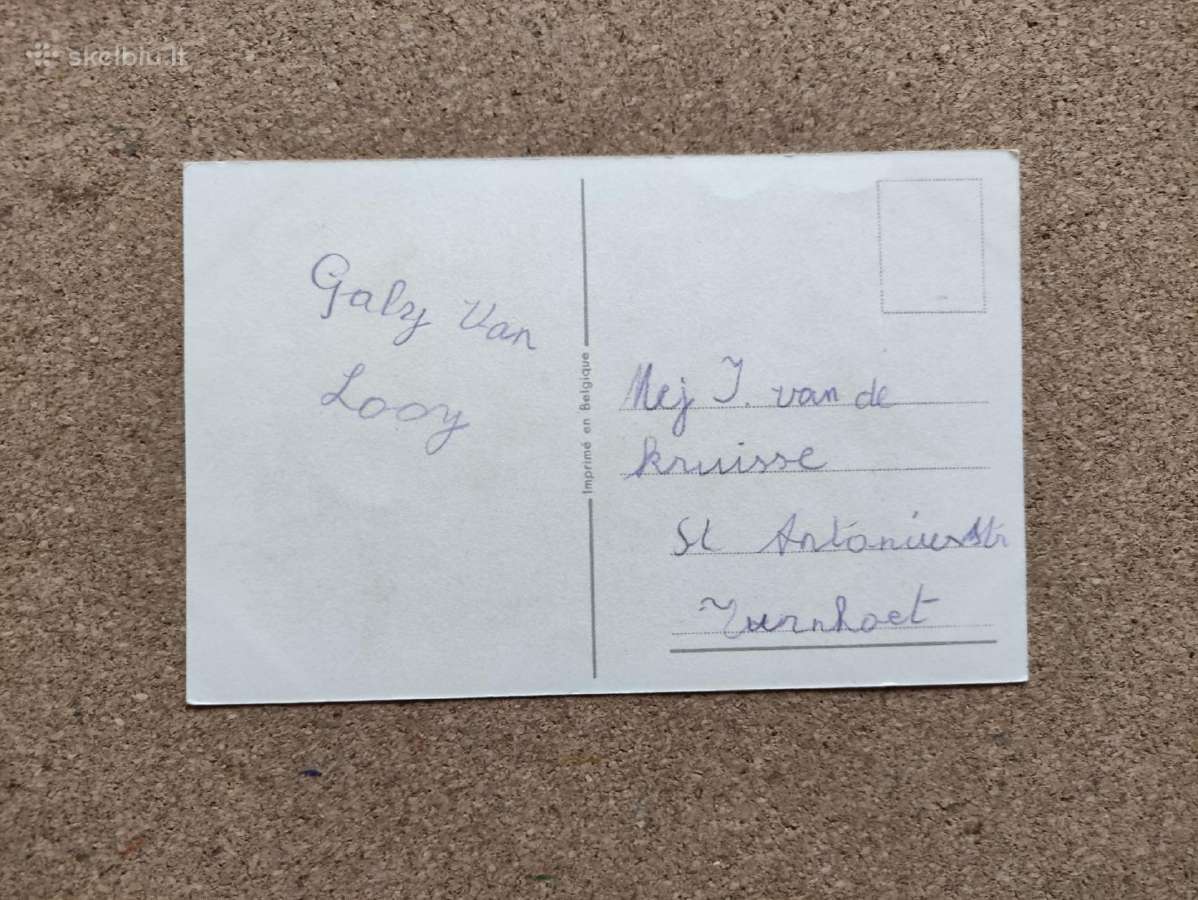 skelbiu.lt
Galy Van
Looy
Imprimé en Belgique
Mej J. van de
kruisse
St Antoniusstr
Turnhoet